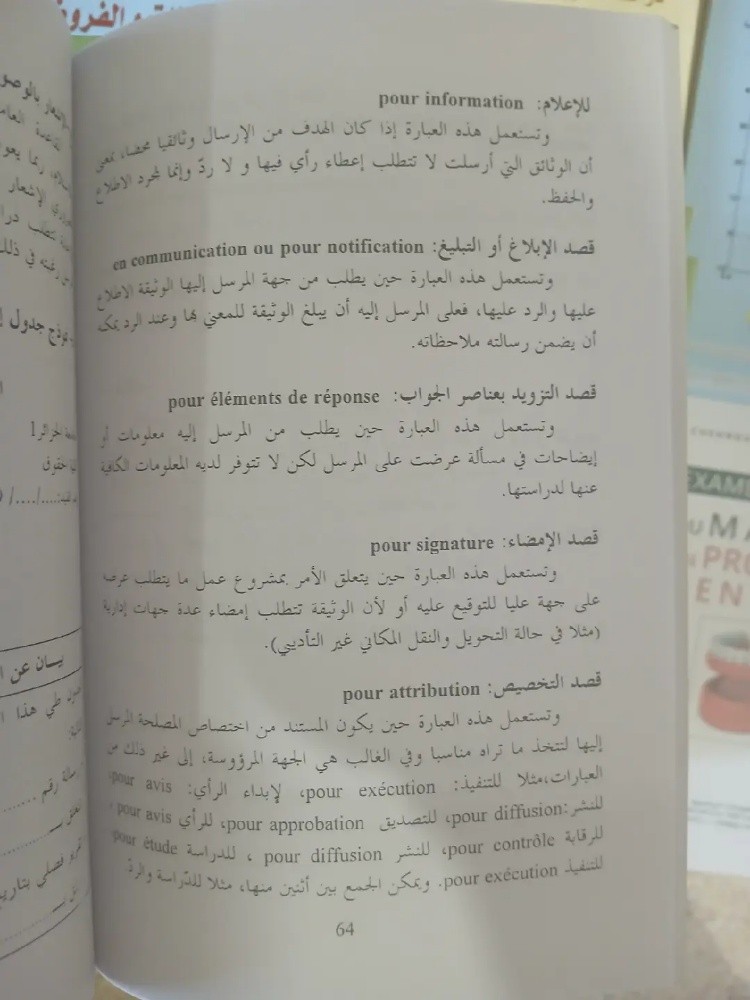 للإعلام: pour information
وتستعمل هذه العبارة إذا كان الهدف من الإرسال وثائقيا محضا، بمعنى
أن الوثائق التي أرسلت لا تتطلب إعطاء رأي فيها و لا ردّ وإنما لمجرد الاطلاع
والحفظ.
قصد الإبلاغ أو التبليغ: en communication ou pour notification
وتستعمل هذه العبارة حين يطلب من جهة المرسل إليها الوثيقة الاطلاع
عليها والرد عليها، فعلى المرسل إليه أن يبلغ الوثيقة للمعني بها وعند الرد يمك
أن يضمن رسالته ملاحظاته.
قصد التزويد بعناصر الجواب: pour éléments de réponse
وتستعمل هذه العبارة حين يطلب من المرسل إليه معلومات أو
إيضاحات في مسألة عرضت على المرسل لكن لا تتوفر لديه المعلومات الكافية
عنها لدراستها.
قصد الإمضاء: pour signature
وتستعمل هذه العبارة حين يتعلق الأمر بمشروع عمل ما يتطلب عرضه
على جهة عليا للتوقيع عليه أو لأن الوثيقة تتطلب إمضاء عدة جهات إدارية
(مثلا في حالة التحويل والنقل المكاني غير التأديبي).
قصد التخصيص: pour attribution
وتستعمل هذه العبارة حين يكون المستند من اختصاص المصلحة المرسل
إليها لتتخذ ما تراه مناسبا وفي الغالب هي الجهة المرؤوسة، إلى غير ذلك من
العبارات،مثلا للتنفيذ: pour exécution، لإبداء الرأي: pour avis،
للنشر:pour diffusion، للتصديق pour approbation، للرأي pour avis،
للرقابة pour contrôle، للنشر pour diffusion ، للدراسة pour étude
للتنفيذ pour exécution. ويمكن الجمع بين أثنين منها، مثلا للدّراسة والردّ.
64
EXAME
PRO
EN